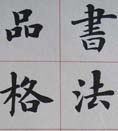 書法
品格